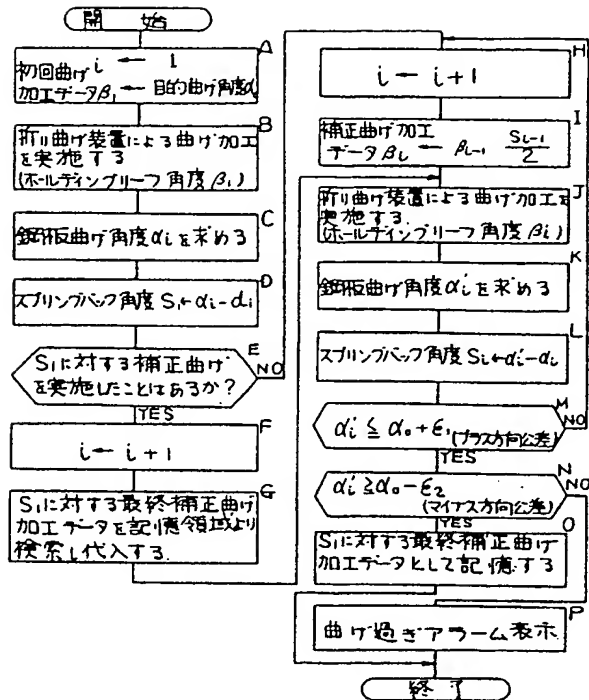 開 始
A
i ← 1
初回曲げ
加工データβ₁ ← 目的曲げ角度α₀
B
折り曲げ装置による曲げ加工
を実施する
(ホールディングリーフ 角度 β₁)
C
鋼板曲げ角度αiを求める
D
スプリングバック角度 S₁←αi−αi
E
S₁に対する補正曲げ
を実施したことはあるか?
NO
YES
F
i ← i+1
G
S₁に対する最終補正曲げ
加工データを記憶領域より
検索し代入する.
H
i ← i+1
I
補正曲げ加工
データ βi ← βi-1 Si-1/2
J
折り曲げ装置による曲げ加工を
実施する.
(ホールディングリーフ 角度 βi)
K
鋼板曲げ角度αi'を求める
L
スプリングバック角度 Si←αi'−αi
M
αi' ≦ α₀+ε₁(プラス方向公差)
NO
YES
N
αi' ≧ α₀−ε₂
(マイナス方向公差)
NO
YES
O
S₁に対する最終補正曲げ
加工データとして記憶する
P
曲げ過ぎアラーム表示
終 了